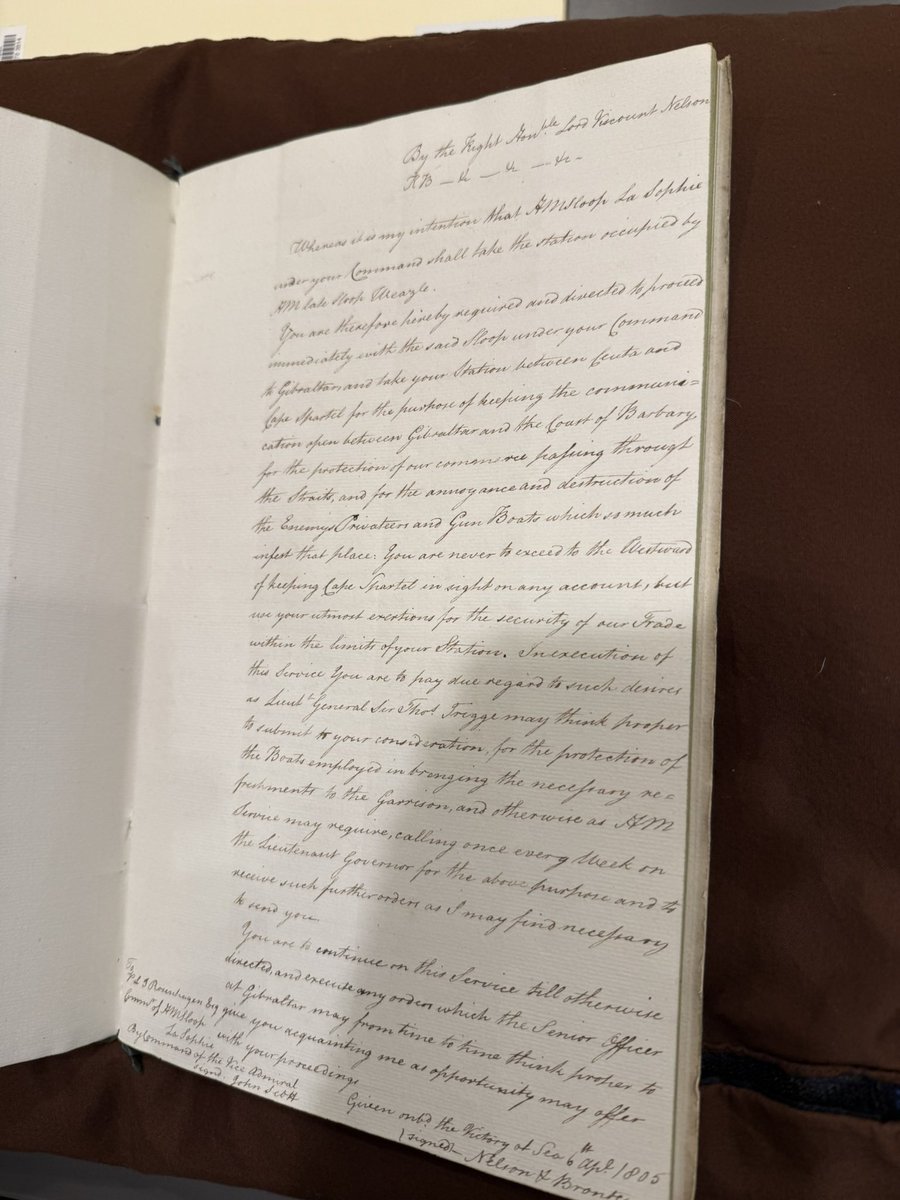 By the Right Hon.ble Lord Viscount Nelson
KB — &c — &c — &c -
Whereas it is my intention that HM Sloop La Sophie
under your Command shall take the station occupied by
HM late Sloop Weazle.
You are therefore hereby required and directed to proceed
immediately with the said Sloop under your Command
to Gibraltar, and take your Station between Ceuta and
Cape Spartel for the purpose of keeping the communi=
cation open between Gibraltar and the Court of Barbary,
for the protection of our commerce passing through
the Straits, and for the annoyance and destruction of
the Enemys Privatiers and Gun Boats which so much
infest that place: You are never to exceed to the Westward
of keeping Cape Spartel in sight on any account, but
use your utmost exertions for the security of our Trade
within the limits of your Station. In execution of
this Service You are to pay due regard to such desires
as Lieut.t General Sir Thos. Trigge may think proper
to submit to your consideration, for the protection of
the Boats employed in bringing the necessary re=
freshments to the Garrison, and otherwise as HM
Service may require, calling once every Week on
the Lieutenant Governor for the above purpose and to
receive such further orders as I may find necessary
to send you.
You are to continue on this Service till otherwise
directed, and execute any orders which the Senior Officer
at Gibraltar may from time to time think proper to
give you acquainting me as opportunity may offer
with your proceedings
Given onbd. the Victory at Sea 6th Apl. 1805
(signed) — Nelson & Bronte
To
P. L. J. Rosenhagen Esq
Commr. of HM Sloop
La Sophie
By Command of the Vice Admiral
signd. John Scott